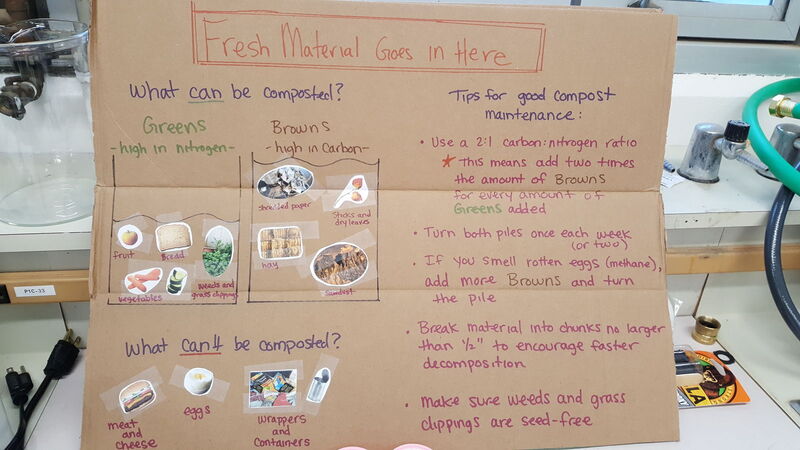 Fresh Material Goes in Here
What can be composted?
Greens
-high in nitrogen-
Browns
-high in Carbon-
fruit
Bread
vegetables
weeds and
grass clippings
shredded paper
sticks and
dry leaves
hay
sawdust
What can't be composted?
meat
and
cheese
eggs
wrappers
and
containers
Tips for good compost
maintenance:
• Use a 2:1 carbon:nitrogen ratio
★ this means add two times
the amount of Browns
for every amount of
Greens added
• Turn both piles once each week
(or two)
• If you smell rotten eggs (methane),
add more Browns and turn
the pile
• Break material into chunks no larger
than 1/2" to encourage faster
decomposition
• make sure weeds and grass
clippings are seed-free
P1C-33
LA